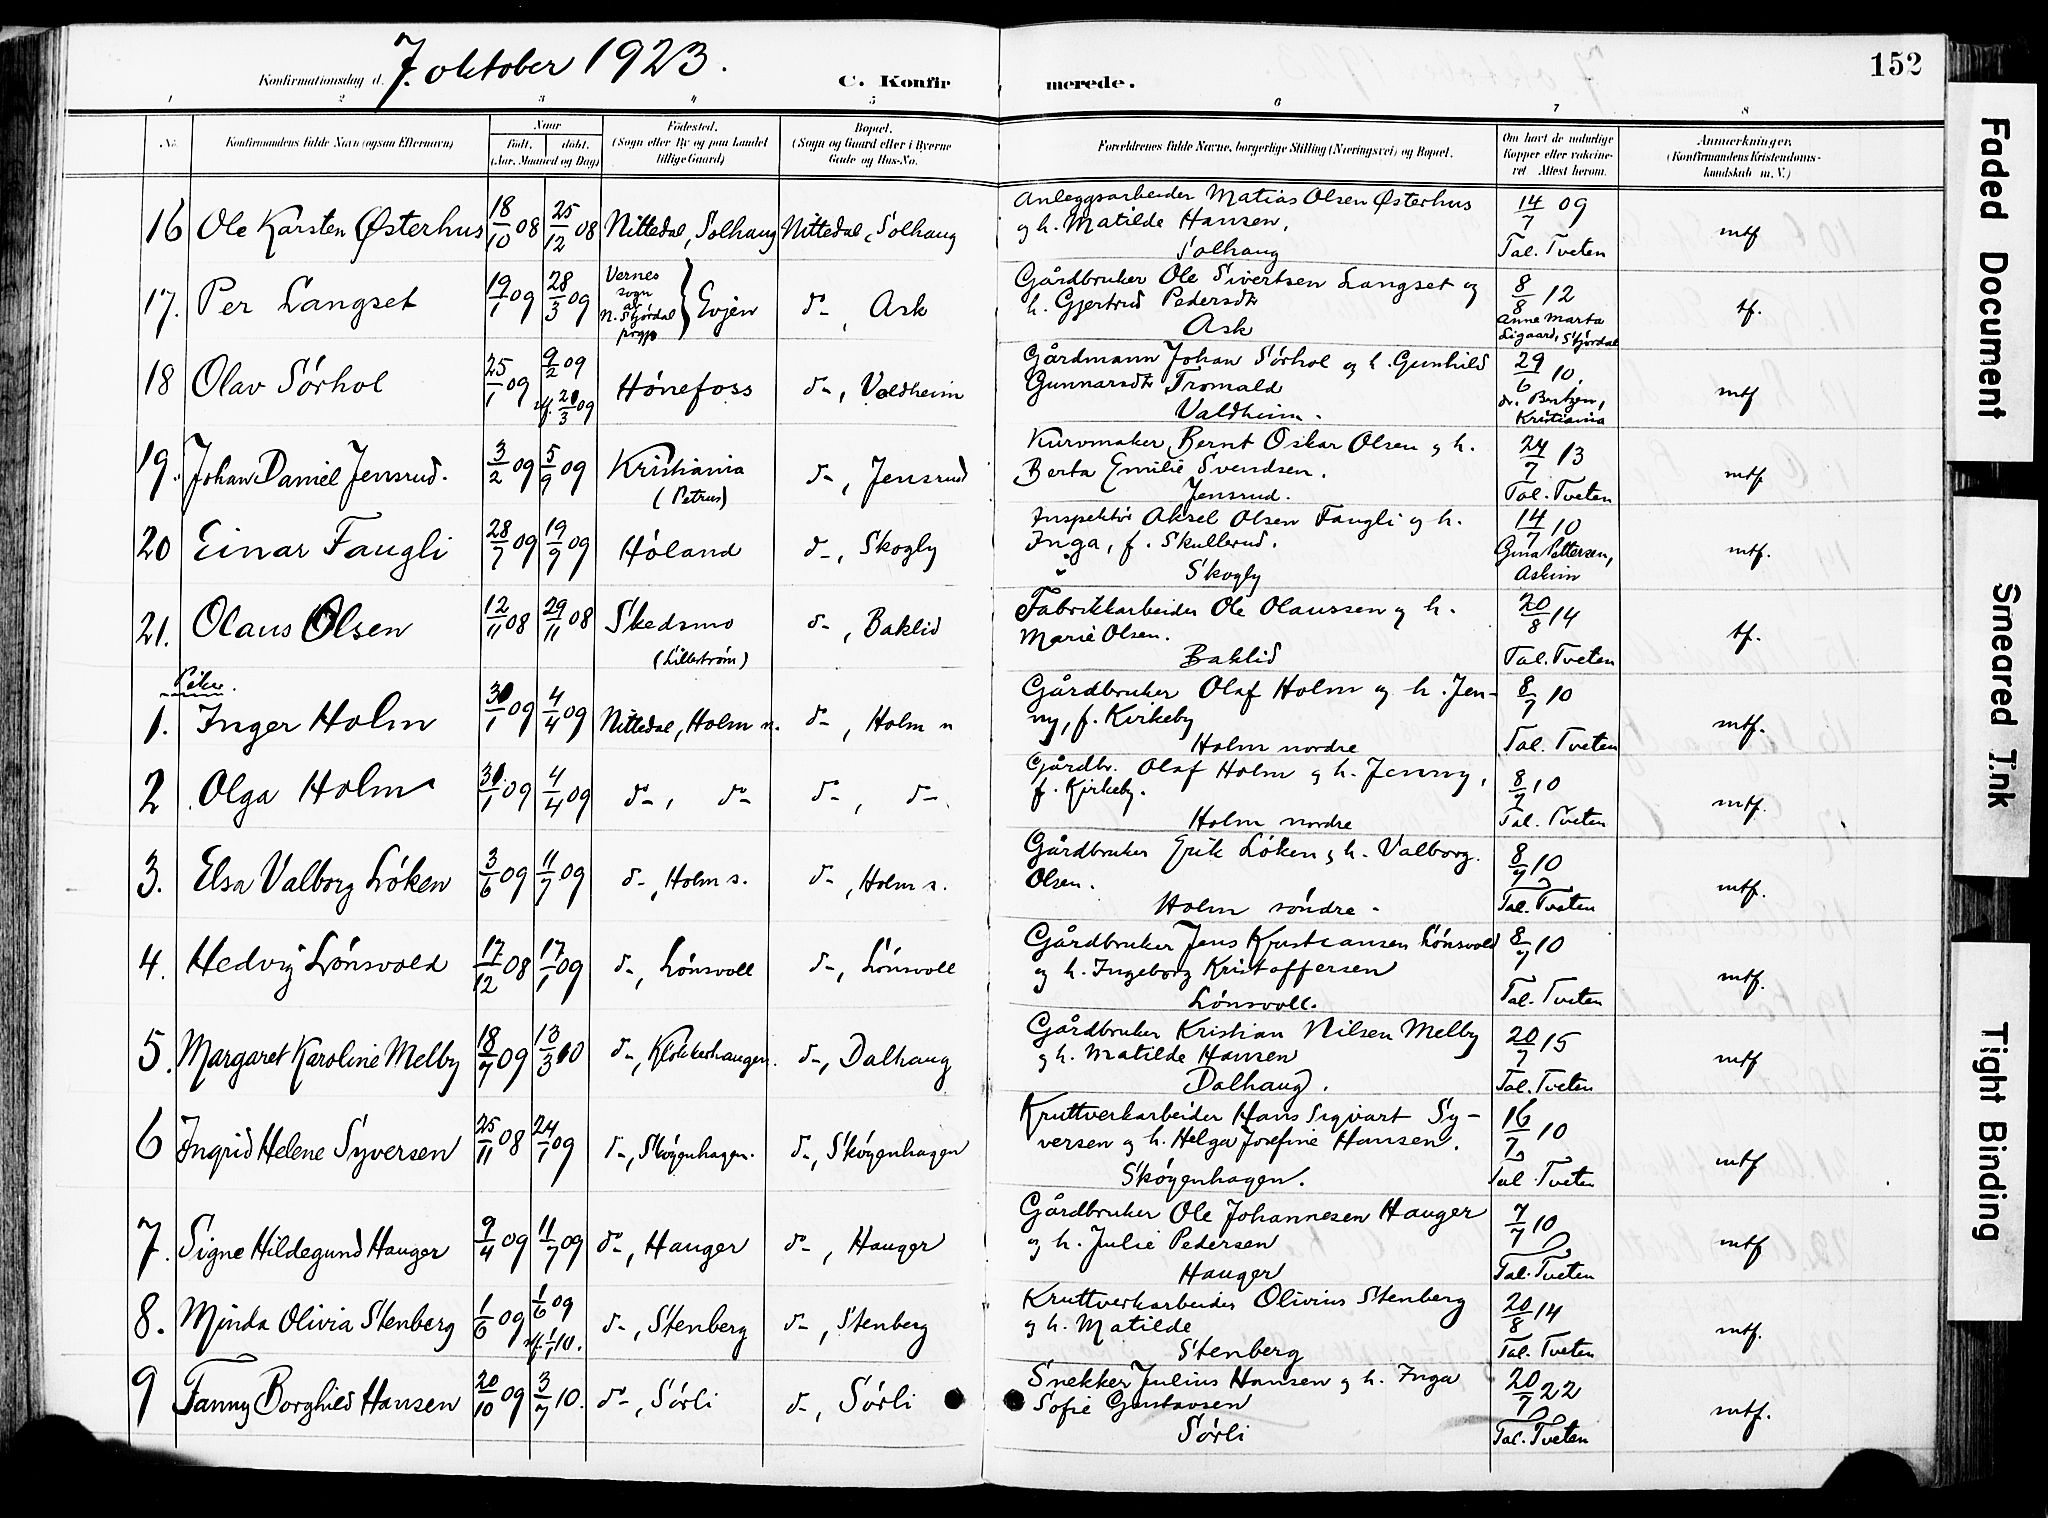 Konfirmationsdag d. 7. oktober 1923.
C. Konfirmerede.
152
1 2 3 4 5 6 7 8
No.
Konfirmandens fulde Navn (ogsaa Efternavn)
Naar
Født. døbt.
(Aar, Maaned og Dag)
Fødested.
(Sogn eller By og paa Landet
tillige Gaard)
Bopæl.
(Sogn og Gaard eller i Byerne
Gade og Hus-No.
Forældrenes fulde Navne, borgerlige Stilling (Næringsvei) og Bopæl.
Om havt de naturlige
Kopper eller vakcine-
ret Attest herom.
Anmærkninger.
(Konfirmandens Kristendoms-
kundskab m. V.)
16 Ole Karsten Østerhus 18/10 08 25/12 08 Nittedal, Solhaug Nittedal, Solhaug
Anleggsarbeider Matias Olsen Østerhus
og h. Matilde Hansen,
Solhaug
14/7 09
Tal. Tveten
mtf
17. Per Langset 19/1 09 28/3 09
Vernes
sogn
av
N. Stjørdal
prgj.
Evjen
do, Ask
Gårdbruker Ole Sivertsen Langset og
h. Gjertrud Pedersdtr
Ask
8/8 12
Anne Marta
Ligaard, Stjørdal
tf.
18 Olav Sørhol 25/1 09 9/2 09
rf. 20/3 09
Hønefoss do, Valdheim
Gårdmann Johan Sørhol og h. Gunhild
Gunnarsdtr Tromald
Valdheim.
29/6 10.
dr. Bentzen,
Kristiania
mtf
19. Johan Daniel Jensrud. 3/2 09 5/9 09 Kristiania
(Petrus)
do, Jensrud
Kurvmaker Bernt Oskar Olsen og h.
Berta Emilie Svendsen.
Jensrud.
24/7 13
Tal. Tveten
mtf
20 Einar Faugli 28/7 09 19/9 09 Høland do, Skogly
Inspektør Aksel Olsen Faugli og h.
Inga, f. Skullerud.
Skogly
14/7 10
Gina Pettersen,
Askim
mtf.
21. Olaus Olsen 12/11 08 29/11 08 Skedsmo
(Lillestrøm)
do, Baklid
Fabrikkarbeider Ole Olaussen og h.
Marie Olsen.
Baklid
20/8 14
Tal. Tveten
tf.
Piker.
1. Inger Holm 30/1 09 4/4 09 Nittedal, Holm n. do, Holm n
Gårdbruker Olaf Holm og h. Jen-
ny, f. Kirkeby
Holm nordre
8/7 10
Tal. Tveten
mtf.
2 Olga Holm 31/1 09 4/4 09 do, do do, do
Gårdbr. Olaf Holm og h. Jenny,
f. Kirkeby.
Holm nordre
8/7 10
Tal. Tveten
mtf.
3. Elsa Valborg Løken 3/6 09 11/7 09 do, Holm s. do, Holm s.
Gårdbruker Erik Løken og h. Valborg
Olsen.
Holm søndre.
8/7 10
Tal. Tveten
mtf.
4. Hedvig Lønsvold 17/12 08 17/1 09 do, Lønsvoll do, Lønsvoll
Gårdbruker Jens Kristiansen Lønsvold
og h. Ingeborg Kristoffersen
Lønsvoll.
8/7 10
Tal. Tveten
mtf.
5. Margaret Karoline Melby 18/7 09 13/3 10 do, Klokkerhaugen. do, Dalhaug
Gårdbruker Kristian Nilsen Melby
og h. Matilde Hansen
Dalhaug.
20/7 15
Tal. Tveten
mtf
6 Ingrid Helene Syversen 25/11 08 24/1 09 do, Skøyenhagen. do, Skøyenhagen
Kruttverkarbeider Hans Sigvart Sy-
versen og h. Helga Josefine Hansen.
Skøyenhagen.
16/7 10
Tal. Tveten
mtf.
7. Signe Hildegund Hauger 9/4 09 11/7 09 do, Hauger do, Hauger
Gårdbruker Ole Johannesen Hauger
og h. Julie Pedersen
Hauger
7/7 10
Tal. Tveten
mtf
8. Minda Olivia Stenberg 1/6 09 1/6 09
rf. 1/1 10.
do, Stenberg do, Stenberg
Kruttverkarbeider Olivius Stenberg
og h. Matilde
Stenberg
20/8 14
Tal. Tveten
mtf.
9 Fanny Borghild Hansen 20/10 09 3/7 10. do, Sørli do, Sørli
Snekker Julius Hansen og h. Inga
Sofie Gustavsen
Sørli
20/7 22
Tal. Tveten
mtf.
Faded Document
Smeared Ink
Tight Binding